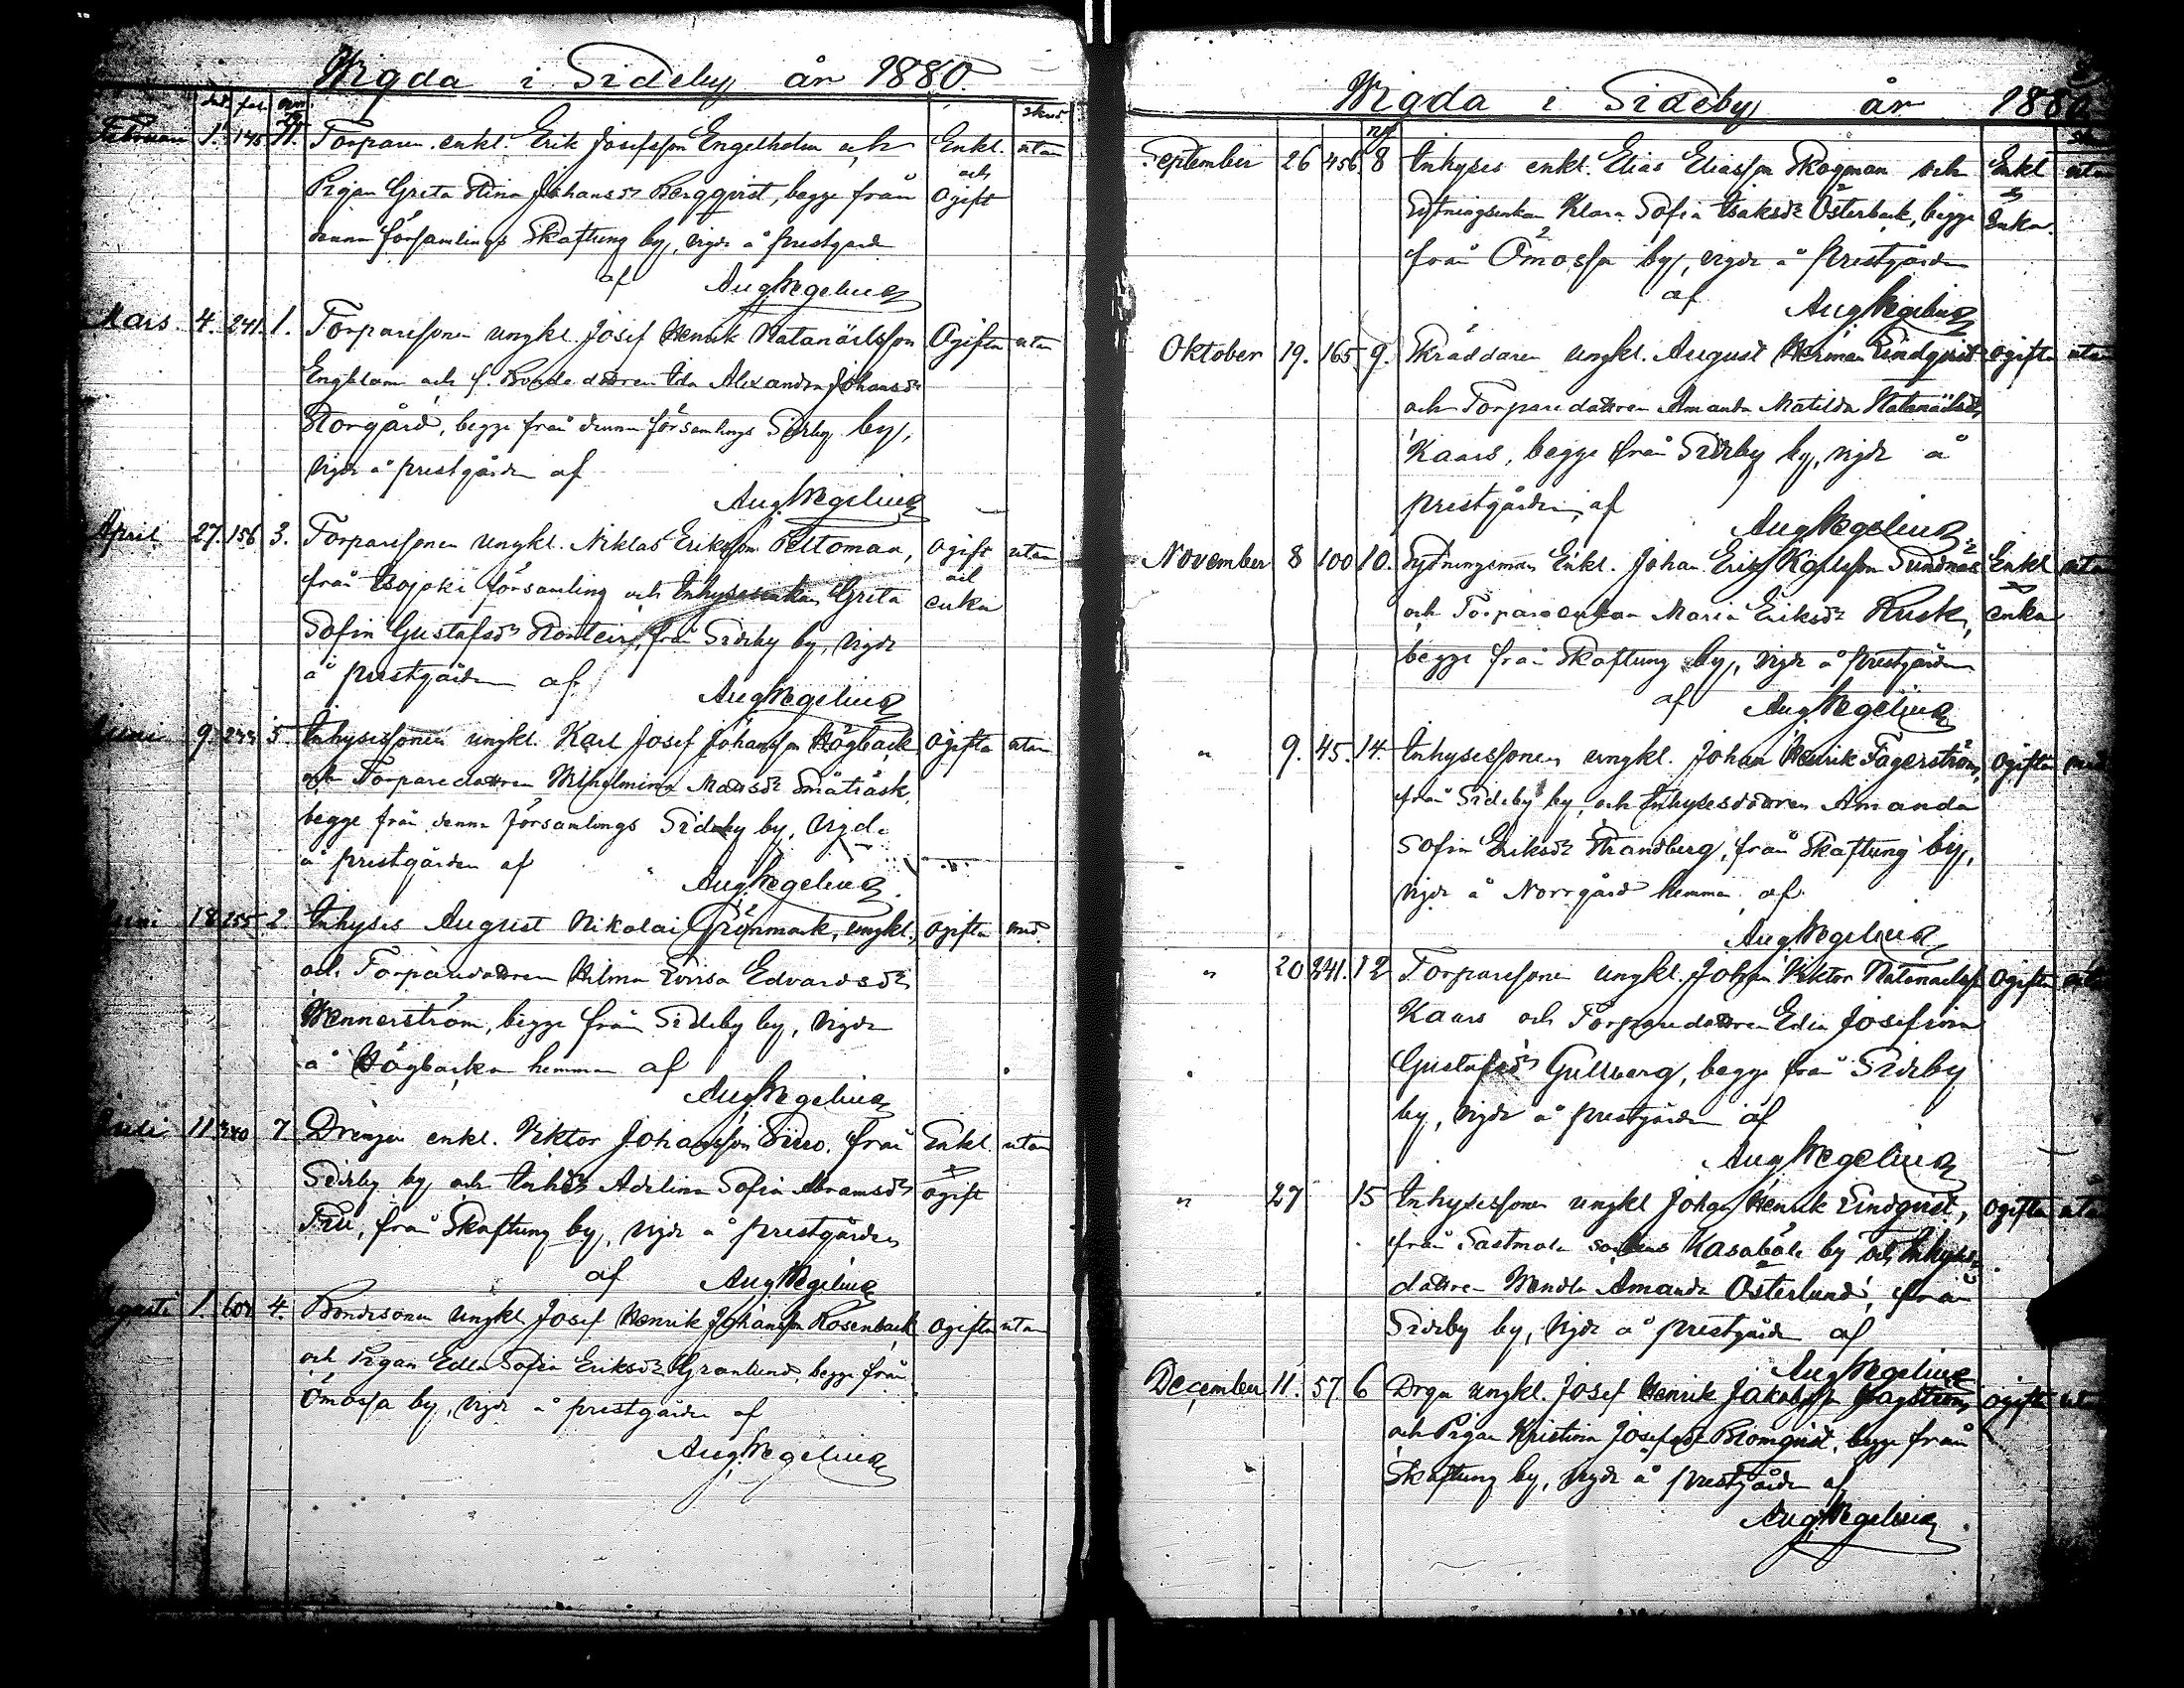 Wigda i Sideby år 1880.
dat. pag.
skuds.
Februari 1. 145 11. Torparen enkl. Erik Josefsson Engelholm och Enkl. utan
Pigan Greta Stina Johansdr Bergqvist, begge från och Ogift
denna församlings Skaftung by, vigde å prestgården
af Aug. Wegelius
Mars 4. 241. 1. Torparesonen ungkl. Josef Henrik Natanäelsson Ogifta utan
och f. Bonde dottren Ida Alexandra Johansdr
Storgård, begge från denna församlings Sideby by,
vigde å prestgården af
Aug. Wegelius
April 27. 156 3. Torparesonen ungkl. Niklas Eriksson Peltoman, ogift utan
från Isojoki församling och Inhysesenkan Greta och enka
Sofia Gustafsdr från Sideby by, vigde
å prestgården af
Aug. Wegelius
9. 5. Inhysessonen ungkl. Karl Josef Johansson Högback ogifta utan
och Torparedottren Wilhelmina Matsdr Småträsk,
begge från denna församlings Sideby by, vigde
å prestgården af
Aug. Wegelius
Juni 18. 255 2. Inhyses August Nikolai Grönmark, ungkl., ogifta med.
och Torparedottren Hilma Lovisa Edvardsdr
Wennerström, begge från Sideby by, vigde
å Högbacka hemman af
Aug. Wegelius
11 240 7 Drengen enkl. Viktor Johansson från Enkl. utan
Sideby by och Inhdr Adelina Sofia Abramsdr ogift
från Skaftung by, vigde å prestgården
af Aug. Wegelius
Augusti 1. 60 4. Bondesonen ungkl. Josef Henrik Johansson Rosenback ogifta utan
och Pigan Edla Sofia Eriksdr Granlund, begge från
Ömossa by, vigde å prestgården af
Aug. Wegelius
Wigda i Sideby år 1880
September 26 456. 8 Inhyses enkl. Elias Eliasson Skogman och Enkl utan
Sytningsenkan Klara Sofia Isaksdr Österback, begge Enka.
från Ömossa by, vigde å prestgården
af Aug. Wegelius
Oktober 19. 165. 9. Skräddaren ungkl. August Herman Lindqvist ogifta utan
och Torparedottren Amanda Matilda Natanäelsdr
Kaars, begge från Sideby by, vigde å
prestgården, af
Aug. Wegelius
November 8 100 10. Sytningsman Enkl. Johan Erik Karlsson Sundnäs Enkl utan
och Torpareenkan Maria Eriksdr Rusk, enka
begge från Skaftung by, vigde å prestgården
af Aug. Wegelius
" 9. 45. 14. Inhysessonen ungkl. Johan Henrik Fagerström, ogifta med
från Sideby by, och Inhysesdottren Amanda
Sofia Eriksdr Strandberg, från Skaftung by,
vigde å Norrgård hemman af
Aug. Wegelius
" 20 241. 12 Torparesonen ungkl. Johan Viktor Natanaelss. Ogifta utan
Kaars och Torparedottren Edla Josefina
Gustafsdr Gullberg, begge från Sideby
by, vigde å prestgården af
Aug. Wegelius
" 27 15 Inhysessonen ungkl Johan Henrik Lindqvist, ogifta utan
från Sastmola sockens Kasaböle by och Inhyses
dottren Wendla Amanda Österlund, från
Sideby by, vigde å prestgården af
Aug. Wegelius
December 11. 57. 6 Drgn ungkl. Josef Henrik Jakobsson Hagström ogifta utan
och Pigan Kristina Josefsdr Blomqvist, begge från
Skaftung by, vigde å prestgården af
Aug. Wegelius